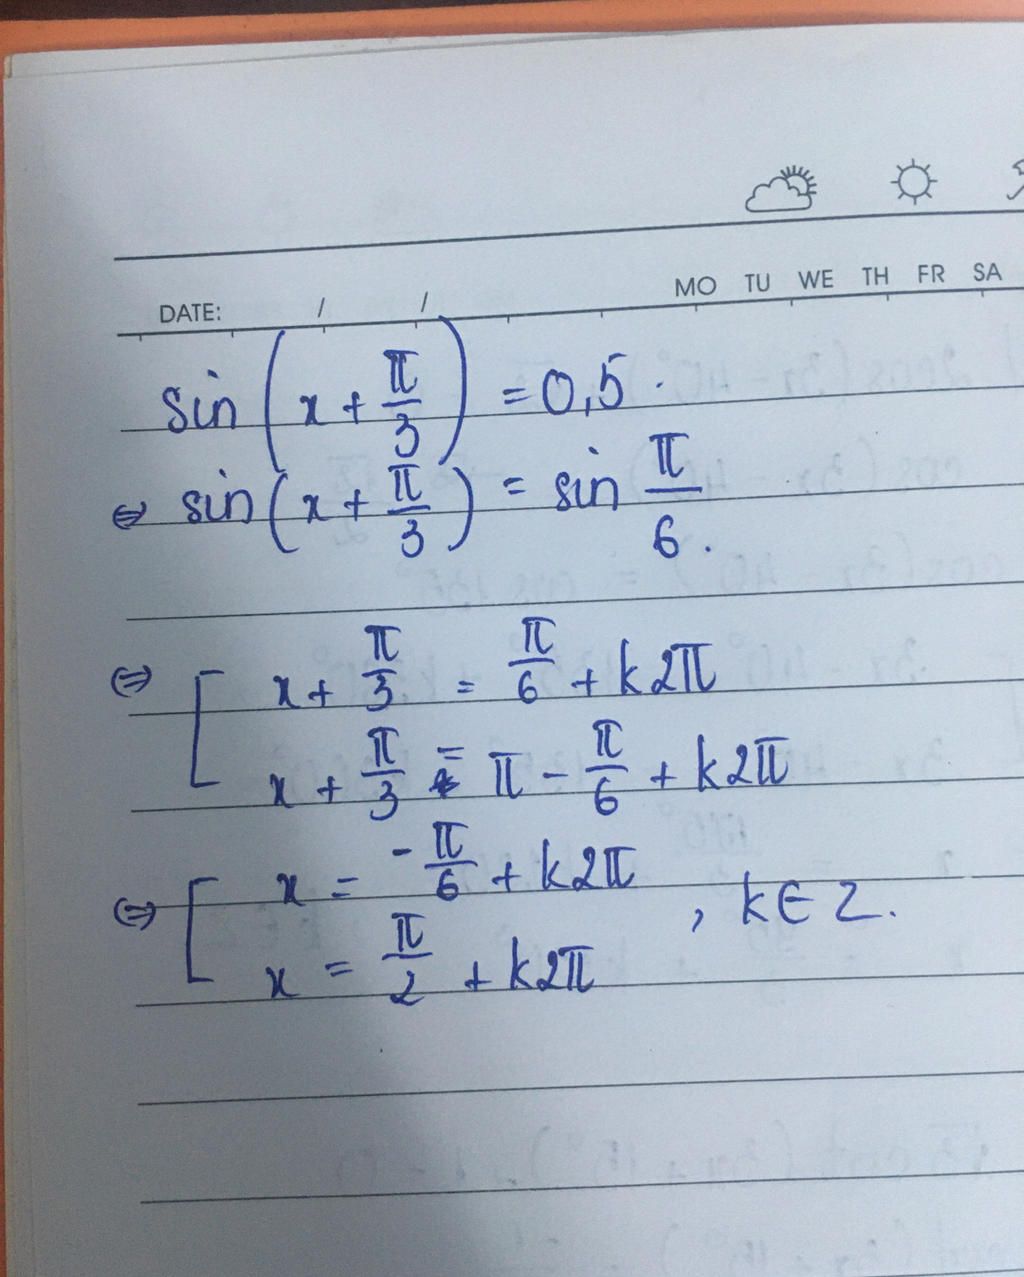 MO TU WE TH FR SA
DATE: / /
sin(x + π/3) = 0,5.
⇔ sin(x + π/3) = sin π/6.
⇔ [ x + π/3 = π/6 + k2π
x + π/3 = π - π/6 + k2π
⇔ [ x = -π/6 + k2π
, k ∈ Z.
x = π/2 + k2π